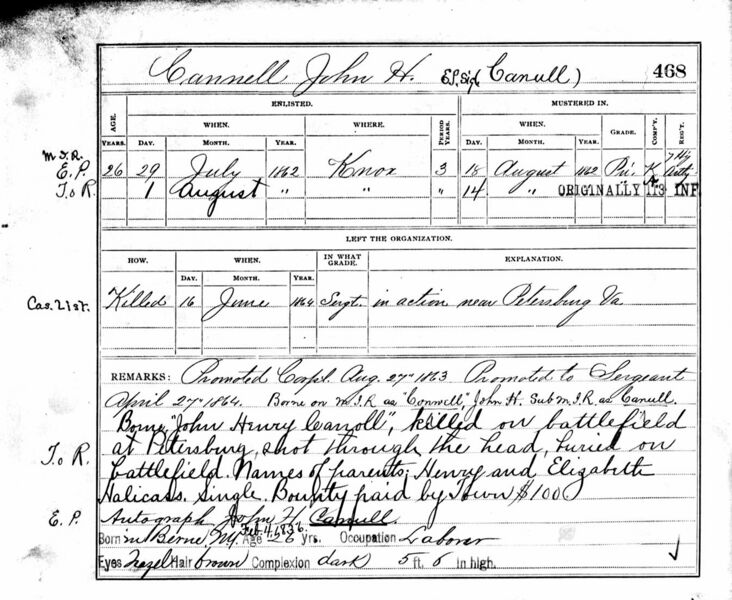 Cannell John H. E.P. Sig. Canull) 468
ENLISTED. MUSTERED IN.
AGE. WHEN. WHERE. PERIOD WHEN. GRADE. COMP'Y. REG'T.
YEARS. DAY. MONTH. YEAR. YEARS. DAY. MONTH. YEAR.
M.I.R.
E.P. 26 29 July 1862 Knox 3 18 August 1862 Pri. K 7 Hy Arty
T.o R. 1 August " " 14 " ORIGINALLY 113 INF
LEFT THE ORGANIZATION.
HOW. WHEN. IN WHAT GRADE. EXPLANATION.
DAY. MONTH. YEAR.
Cas. List. Killed 16 June 1864 Sergt. in action near Petersburg Va
REMARKS: Promoted Corpl. Aug. 27" 1863 Promoted to Sergeant
April 27" 1864. Borne on M.I.R as "Connell", John H. Sub M.I.R as Canull.
Borne, "John Henry Carroll", killed on battlefield
T.o R. at Petersburg, shot through the head, buried on
battlefield. Names of parents; Henry and Elizabeth
Single. Bounty paid by Town $100
E.P. Autograph John H. Canull.
Born in Berne NY. Feb. 4, 1836 Age 26 yrs. Occupation Laborer
Eyes hazel Hair brown Complexion dark 5 ft. 6 in high.